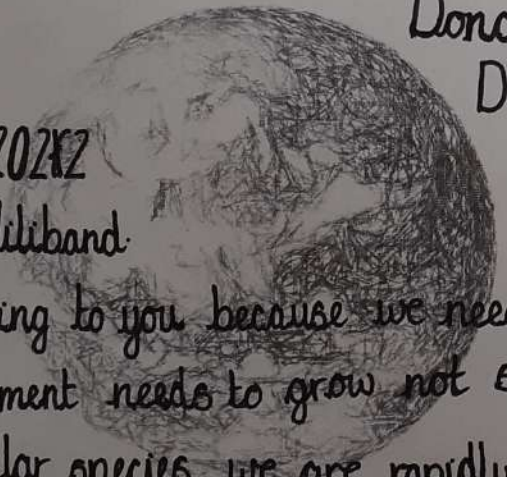 Donc
D
2022
iliband.
ing to you because we need
ment needs to grow not
lar species we are rapidly